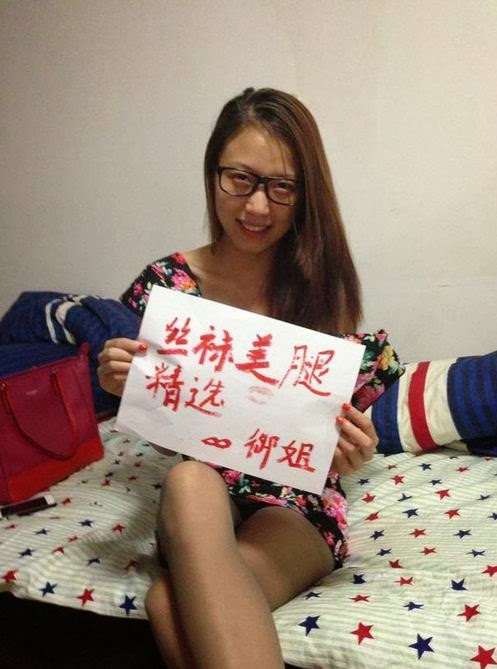 丝袜美腿
精选
∞ 御姐